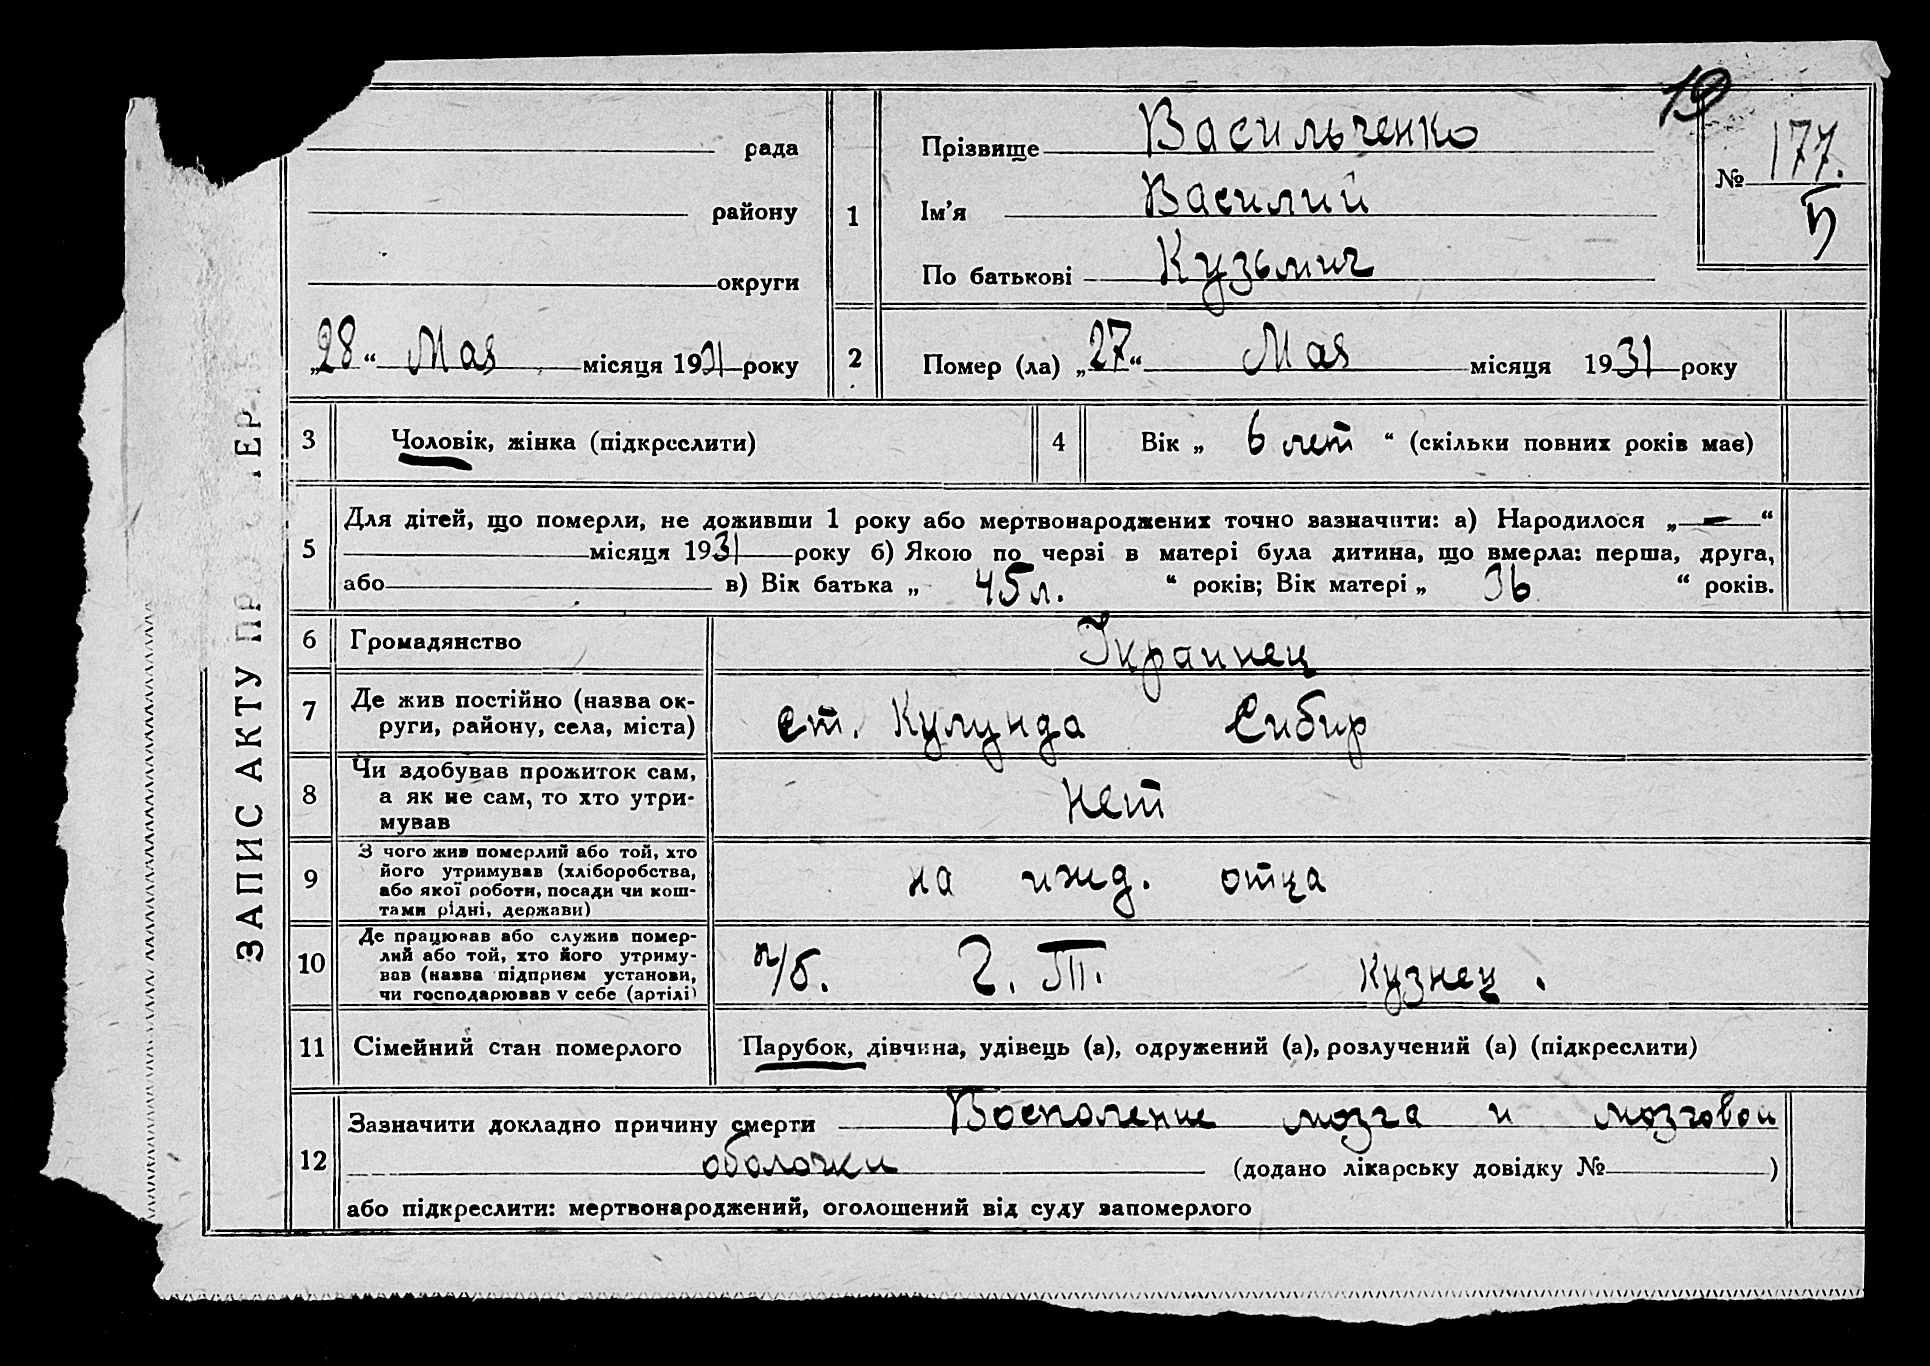 ЗАПИС АКТУ ПРО
рада
району
округи
„28“ Мая місяця 1931 року
19
№ 177.
5
1
Прізвище Васильченко
Ім'я Василий
По батькові Кузьмич
2 Помер (ла) „27“ Мая місяця 1931 року
3 Чоловік, жінка (підкреслити)
4 Вік „ 6 лет “ (скільки повних років має)
5
Для дітей, що померли, не доживши 1 року або мертвонароджених точно зазначити: а) Народилося „—“
місяця 1931 року б) Якою по черзі в матері була дитина, що вмерла: перша, друга,
або в) Вік батька „ 45 л. “ років; Вік матері „ 36 “ років.
6 Громадянство Украинец
7 Де жив постійно (назва ок-
руги, району, села, міста) ст. Кулунда Сибир
8 Чи здобував прожиток сам,
а як не сам, то хто утри-
мував нет
9 З чого жив померлий або той, хто
його утримував (хліборобства,
або якої роботи, посади чи кош-
тами рідні, держави) на ижд. отца
10 Де працював або служив помер-
лий або той, хто його утриму-
вав (назва підприєм установи,
чи господарював у себе (артілі) п/б. Г. Т. кузнец.
11 Сімейний стан померлого Парубок, дівчина, удівець (а), одружений (а), розлучений (а) (підкреслити)
12
Зазначити докладно причину смерти Восполение мозга и мозговой
оболочки (додано лікарську довідку № )
або підкреслити: мертвонароджений, оголошений від суду запомерлого